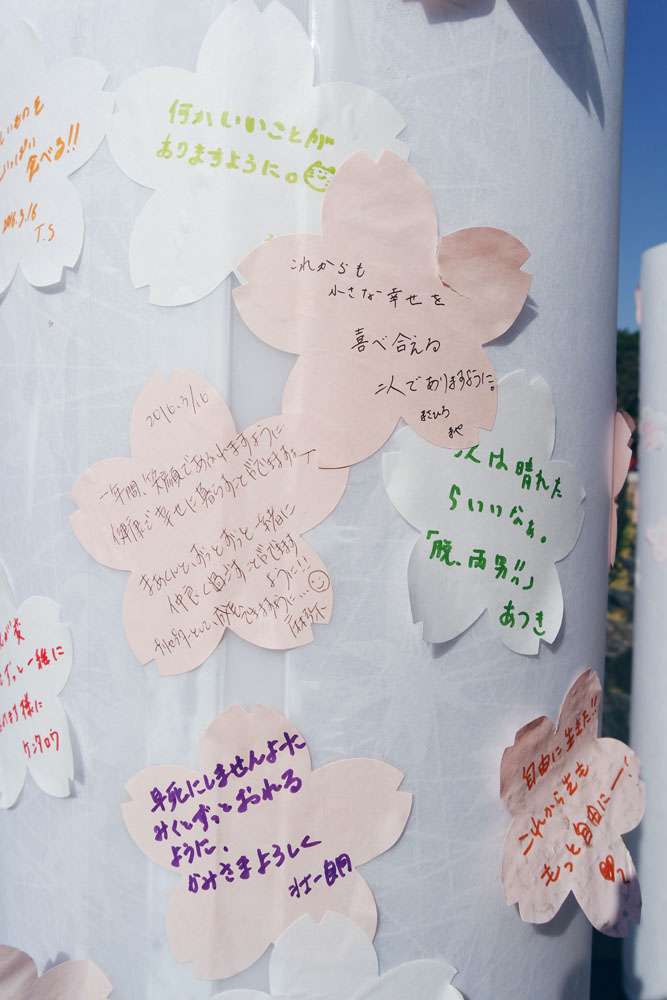 いものを
いっぱい
食べる!!
2016.3/16
T.S
何かいいことが
ありますように。
これからも
小さな幸せを
喜べ合える
二人でありますように。
まさひろ
まや
2016.3/16
一年間、笑顔であふれますように
健康で幸せに暮らすことができますよーに
ずっとずっと一緒に
仲良く過ごすことができます
ように!!
次は晴れた
らいいなぁ。
「脱、雨男!!」
あつき
が友
ずっと一緒に
ます様に
ケンタロウ
早死にしませんよーに
みくとずっとおれる
ように、
かみさまよろしく
壮一朗
自由に生きた!!
これから先も
もっと自由にー!